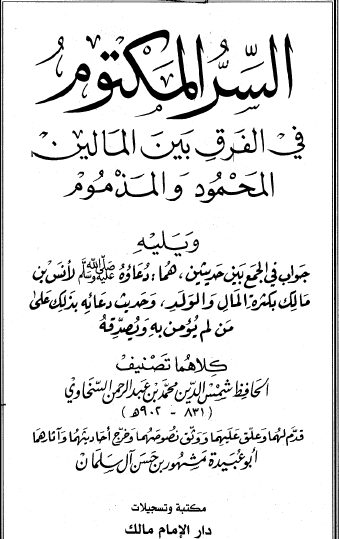 السِّرُّ المَكْتُومُ
في الفَرقِ بَينَ المَالَينِ
المَحْمُودِ وَالمَذْمُومِ
وَيَليهِ
جَوابٌ في الجَمعِ بَينَ حَديثَينِ، هُمَا: دُعَاؤهُ ﷺ لأنَسِ بنِ
مَالِكٍ بِكَثرَةِ المَالِ وَالوَلَدِ، وَحَديثِ دُعَائِهِ بِذَلِكَ عَلَى
مَن لَم يُؤْمِن بِهِ وَيُصَدِّقهُ
كِلَاهُمَا تَصْنيفُ
الحَافِظِ شَمْسِ الدِّينِ مُحَمَّدِ بنِ عَبدِ الرَّحمنِ السَّخَاوِي
(٨٣١ - ٩٠٢هـ)
قَدَّمَ لَهُمَا وَعَلَّقَ عَلَيهِمَا وَوَثَّقَ نُصُوصَهُمَا وَخَرَّجَ أحَاديثَهُمَا وَآثَارَهُمَا
أبُو عُبَيدَة مَشهُور بن حَسَن آل سَلمَان
مكتبة وتسجيلات
دار الإمام مالك